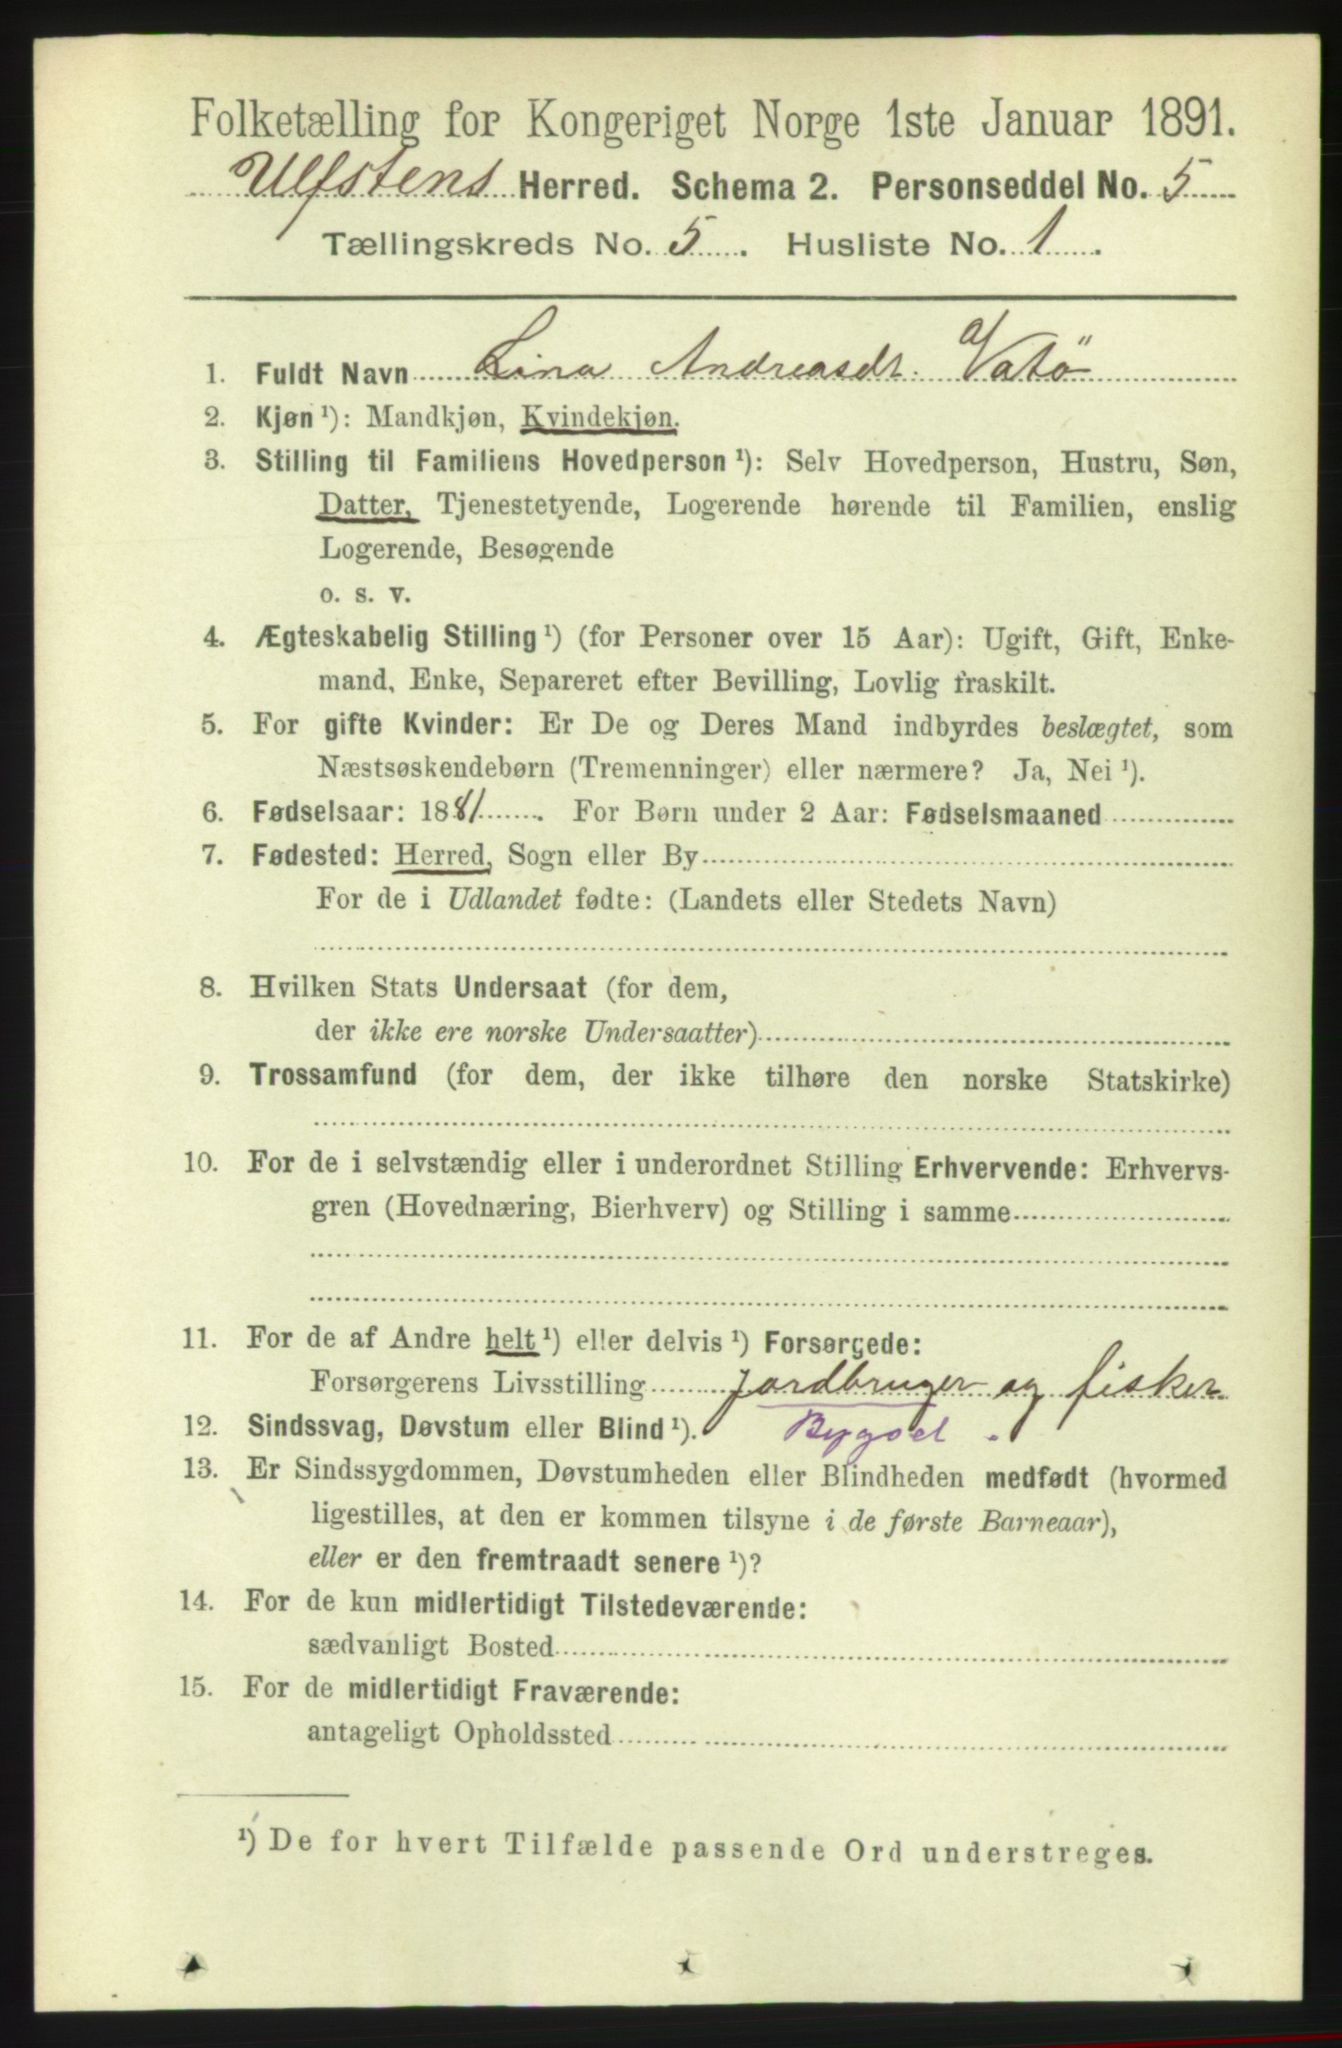 Folketælling for Kongeriget Norge 1ste Januar 1891.
Ulfstens Herred. Schema 2. Personseddel No. 5
Tællingskreds No. 5. Husliste No. 1.
1. Fuldt Navn Lina Andreasdt. a/ Vatö
2. Kjøn ¹): Mandkjøn, Kvindekjøn.
3. Stilling til Familiens Hovedperson ¹): Selv Hovedperson, Hustru, Søn,
Datter, Tjenestetyende, Logerende hørende til Familien, enslig
Logerende, Besøgende
o. s. v.
4. Ægteskabelig Stilling ¹) (for Personer over 15 Aar): Ugift, Gift, Enke-
mand, Enke, Separeret efter Bevilling, Lovlig fraskilt.
5. For gifte Kvinder: Er De og Deres Mand indbyrdes beslægtet, som
Næstsøskendebørn (Tremenninger) eller nærmere? Ja, Nei ¹).
6. Fødselsaar: 1881. For Børn under 2 Aar: Fødselsmaaned
7. Fødested: Herred, Sogn eller By
For de i Udlandet fødte: (Landets eller Stedets Navn)
8. Hvilken Stats Undersaat (for dem,
der ikke ere norske Undersaatter)
9. Trossamfund (for dem, der ikke tilhøre den norske Statskirke)
10. For de i selvstændig eller i underordnet Stilling Erhvervende: Erhvervs-
gren (Hovednæring, Bierhverv) og Stilling i samme
11. For de af Andre helt ¹) eller delvis ¹) Forsørgede:
Forsørgerens Livsstilling Jordbruger og fisker
12. Sindssvag, Døvstum eller Blind ¹). Bygsel.
13. Er Sindssygdommen, Døvstumheden eller Blindheden medfødt (hvormed
ligestilles, at den er kommen tilsyne i de første Barneaar),
eller er den fremtraadt senere ¹)?
14. For de kun midlertidigt Tilstedeværende:
sædvanligt Bosted
15. For de midlertidigt Fraværende:
antageligt Opholdssted
¹) De for hvert Tilfælde passende Ord understreges.